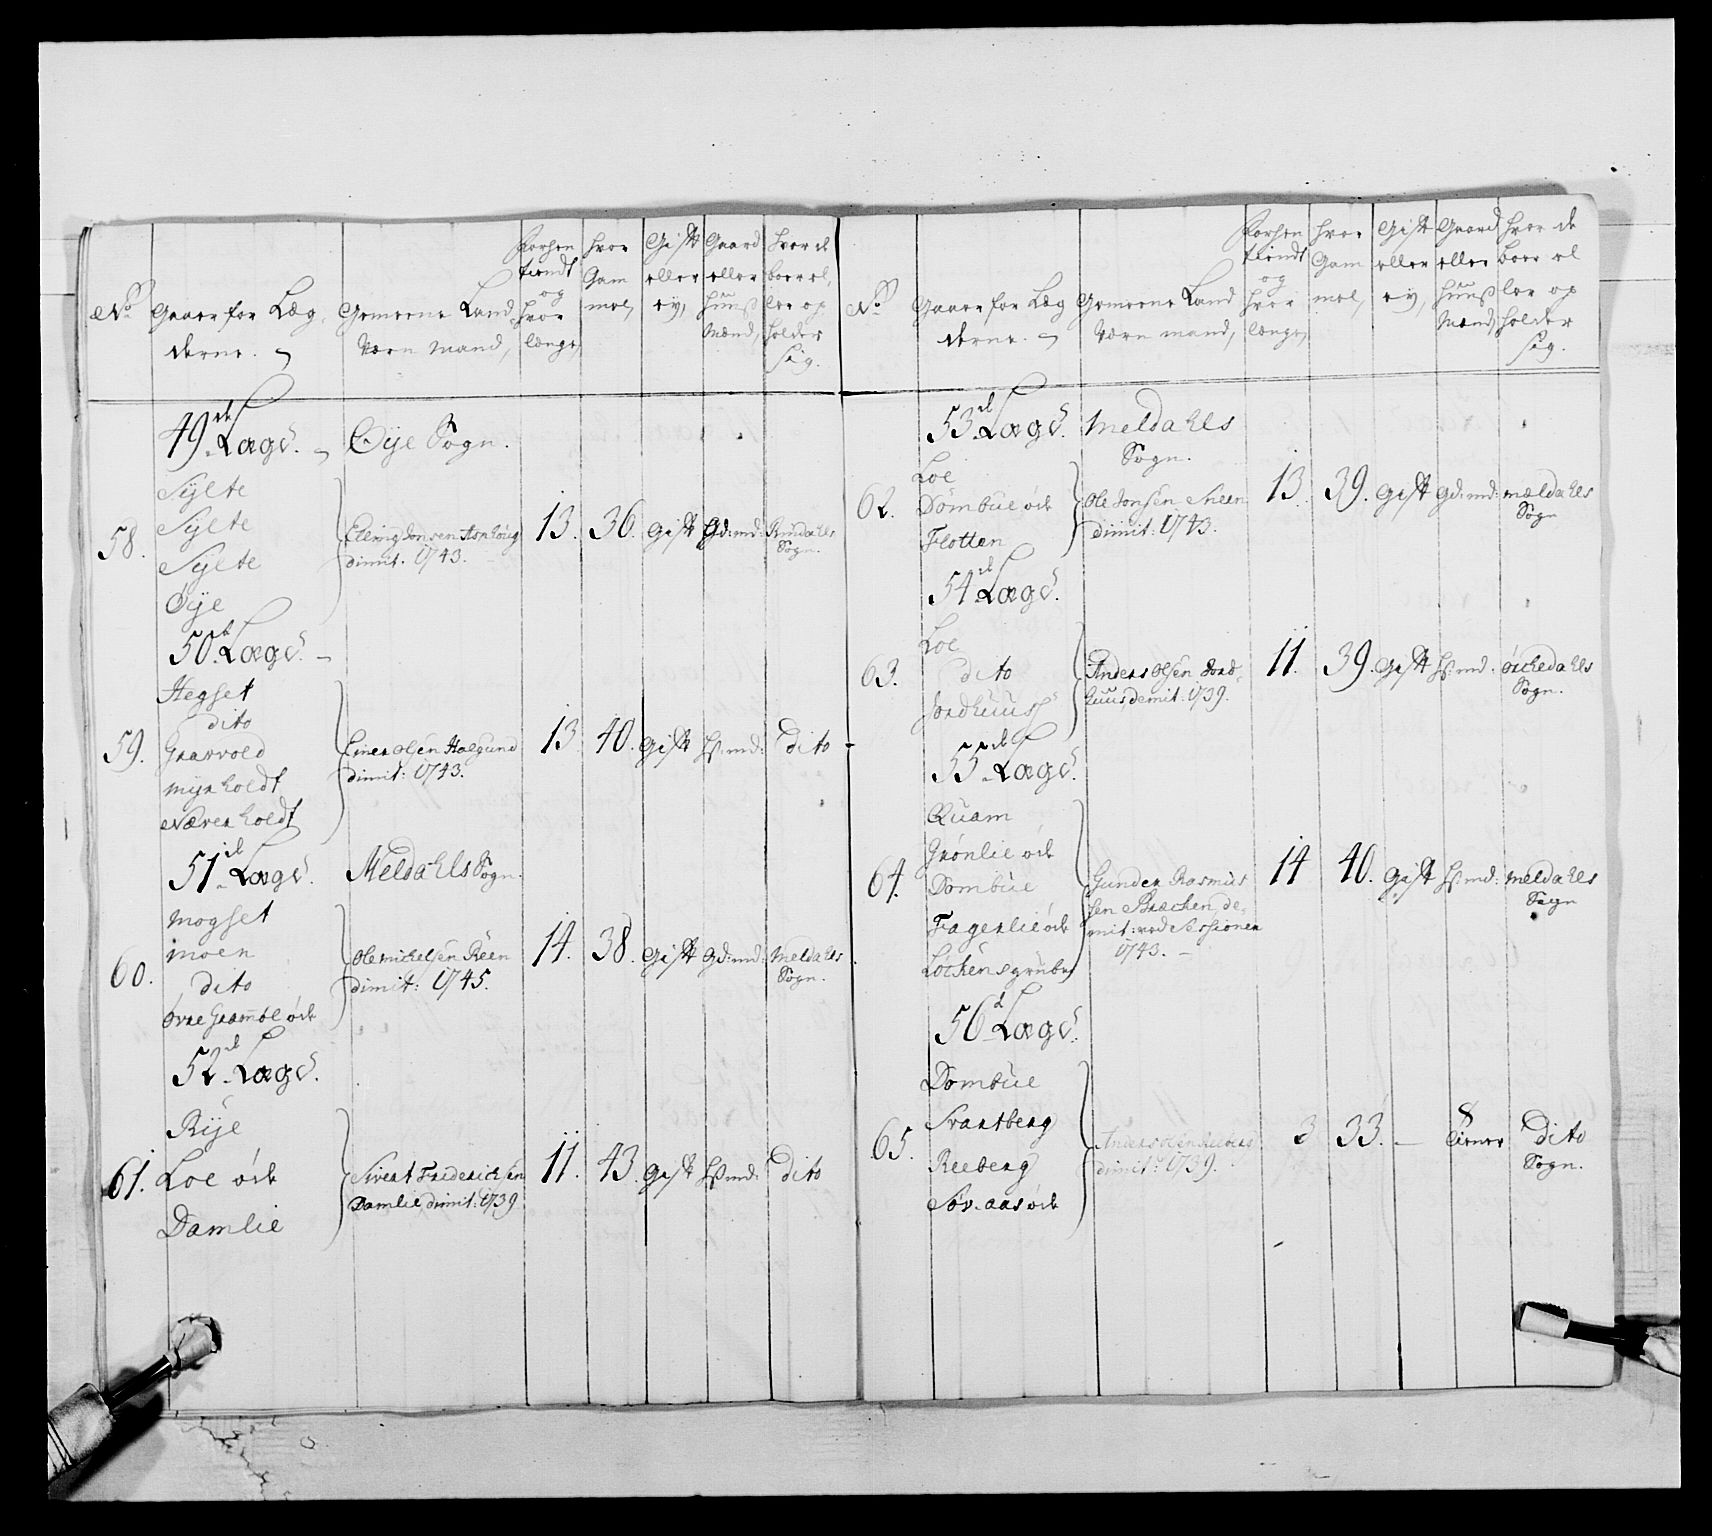 No.
Gaarer for Læg
derne.
Gemeene Land
Værn Mand,
Forhen
tient
og
hvor
længe,
hvor
Gam
mel,
Gift
eller
ey,
Gaard
eller
Huuß
Mænd,
hvor de
boer el
ler op
holder
sig.
49de Lægd.
Øye Sogn.
58.
Sylte
Sylte
Sylte
Øye
Elling Jonsen
dimit. 1743.
13. 36. Gift Gd: md: Rindahls
Sogn.
50d Lægd.
59.
Hegset
dito
Graavold
Myrholdt
Næverholdt
Einer Olsen Halgund
dimit: 1743.
13. 40. Gift Hs: md: dito
51de Lægd.
Meldahls Sogn.
60.
Mogset
Moen
dito
Øvre Gramboe øde
Ole Michelsen Reen
dimit: 1745.
14. 38. Gift Gd: md: Meldahls
Sogn.
52de Lægd.
61.
Rye
Loe øde
Damlie
Sivert Friderichsen
Damlie, dimit: 1739
11. 43. Gift Hs: md: dito
No.
Gaarer for Læg
derne.
Gemeene Land
Værn mand,
Forhen
tient
og
hvor
længe,
hvor
Gam
mel,
Gift
eller
ey,
Gaard
eller
Huuß
Mænd,
hvor de
boer el
ler op
holder
sig.
53de Lægd.
Meldahls
Sogn.
62.
Loe
Dombue øde
Flotten
Ole Jonsen Sneen
dimit: 1743.
13. 39. Gift Gd: md: Mældahls
Sogn
54de Lægd.
63.
Loe
dito
Jordhuus
Anders Olsen Jord
huus, demit: 1739.
11. 39. Gift Hs: md:Ørchedahls
Sogn.
55de Lægd.
64.
Quam
Grønlie øde
Dombue
Fagerlie øde
Løchens grube
Gunder Rasmus
sen Bræchen, de-
mit: ved Sessionen
1743.
14 40. Gift Hs: md: Meldahls
Sogn
56d Lægd.
65.
Dombue
Svartberg
Reeberg
Sør-aas øde
Anders Olsen Reeberg
dimit: 1739.
3 33. — tiener dito
Sogn.